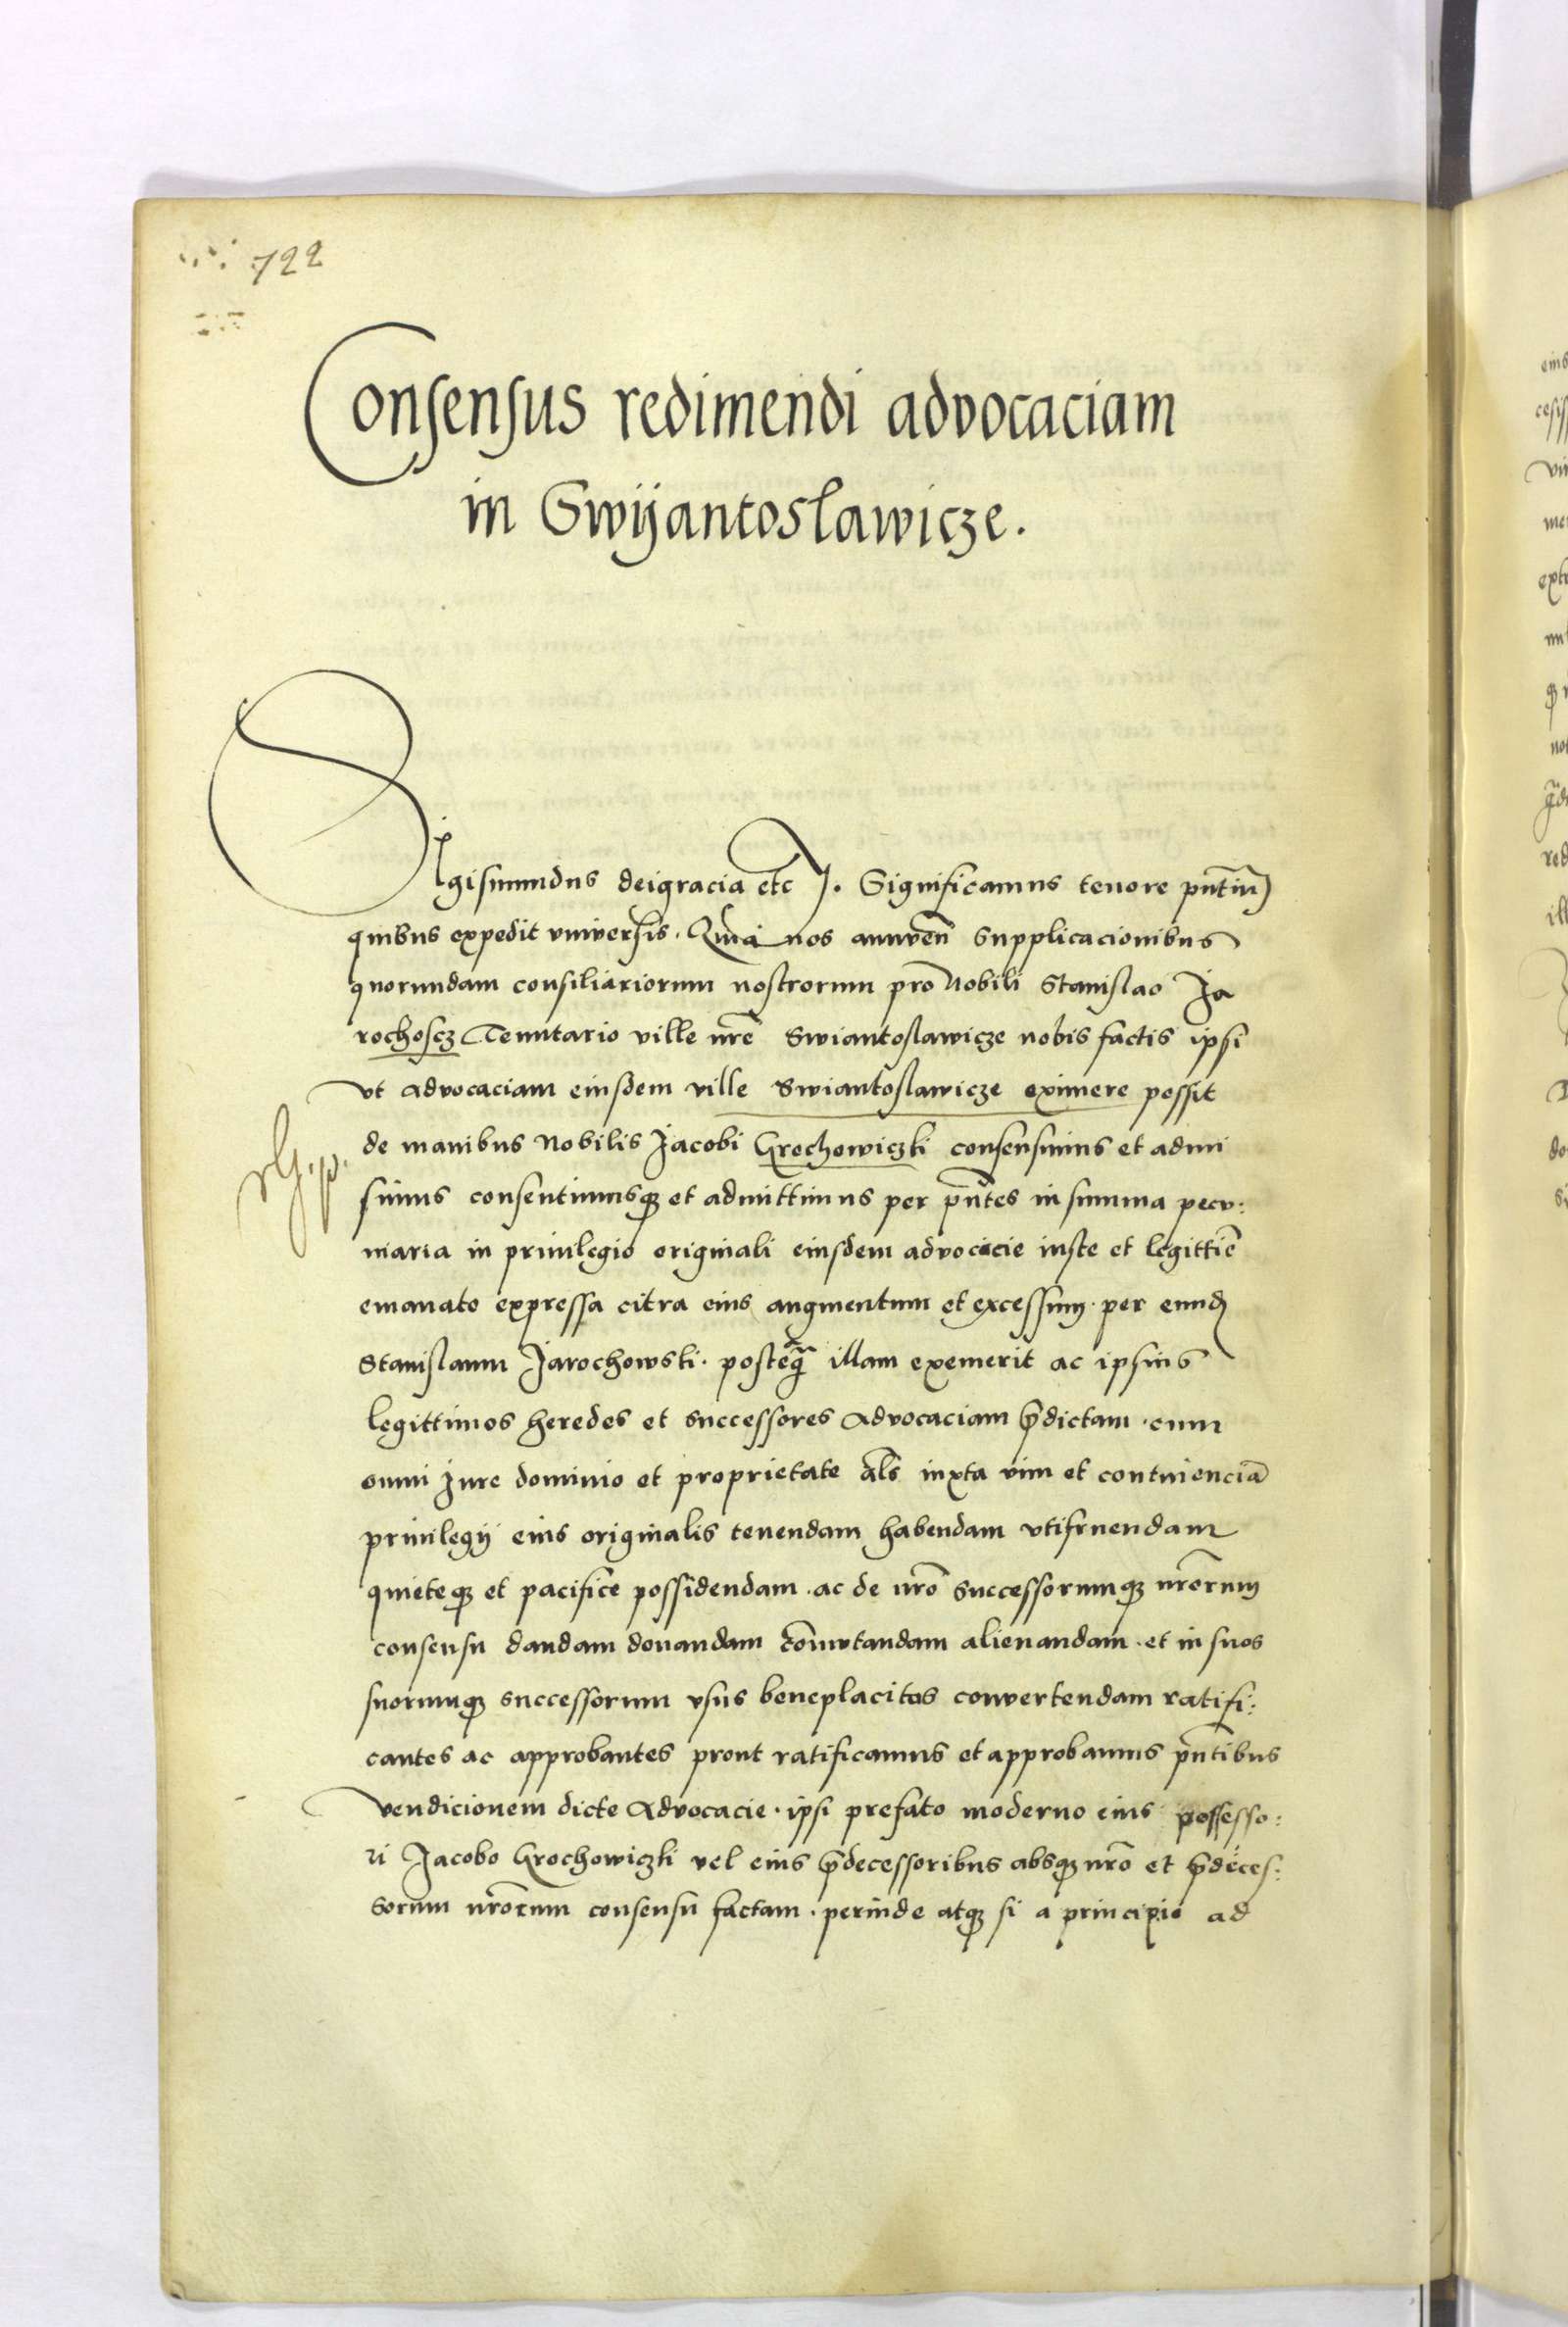 722
Consensus redimendi advocaciam
in Swyantoslawicze.
Sigismundus deigracia etc. Significamus tenore pñtiu
quibus expedit universis. Quia nos annuen̄ supplicacionibus
quorundam consiliariorum nostrorum pro Nobili Stanislao Ja
rochoscz Tenutario ville nr̄e Swiantoslawicze nobis factis ipsi
vt advocaciam eiusdem ville Swiantoslawicze eximere possit
de manibus Nobilis Jacobi Grochowiczki consensimus et admi
simus consentimusqȝ et admittimus per pn̄tes in summa pecu:
niaria in privilegio originali eiusdem advocacie iuste et legittīe
emanato expressa citra eius augmentum et excessum. per eund
Stanislaum Jarochowski. posteq̄ illam exemerit ac ipsius
legittimos heredes et successores Advocaciam p̄dictam. cum
omni Jure dominio et proprietate al̄s iuxta vim et continenciā
privilegij eius originalis tenendam habendam utifruendam
quieteqȝ et pacifice possidendam. ac de nr̄o successorumqȝ nr̄orum
consensu dandam donandam com̄utandam alienandam. et in suos
suorumqȝ successorum usus beneplacitos convertendam ratifi:
cantes ac approbantes prout ratificamus et approbamus pn̄tibus
vendicionem dicte Advocacie. ipsi prefato moderno eius possesso:
ri Jacobo Grochowiczki vel eius p̄decessoribus absqȝ nr̄o et p̄deces:
sorum nr̄orum consensu factam. perinde atqȝ si a principio ad